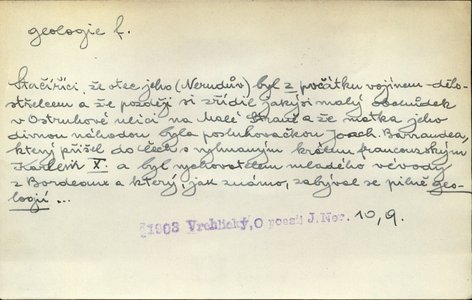 geologie f.
Stačíříci, že otec jeho (Nerudův) byl z počátku vojínem-dělo-
střelcem a že později si zřídil jakýsi malý obchůdek
v Ostruhové ulici na Malé Straně a že matka jeho
divnou náhodou byla posluhovačkou Joach. Barrandea,
který přišel do Čech s vyhnaným králem francouzským
Karlem X. a byl vychovatelem mladého vévody
z Bordeaux a který, jak známo, zabýval se pilně geo-
logií ...
č1903 Vrchlický, O poesii J. Ner. 10, 9.